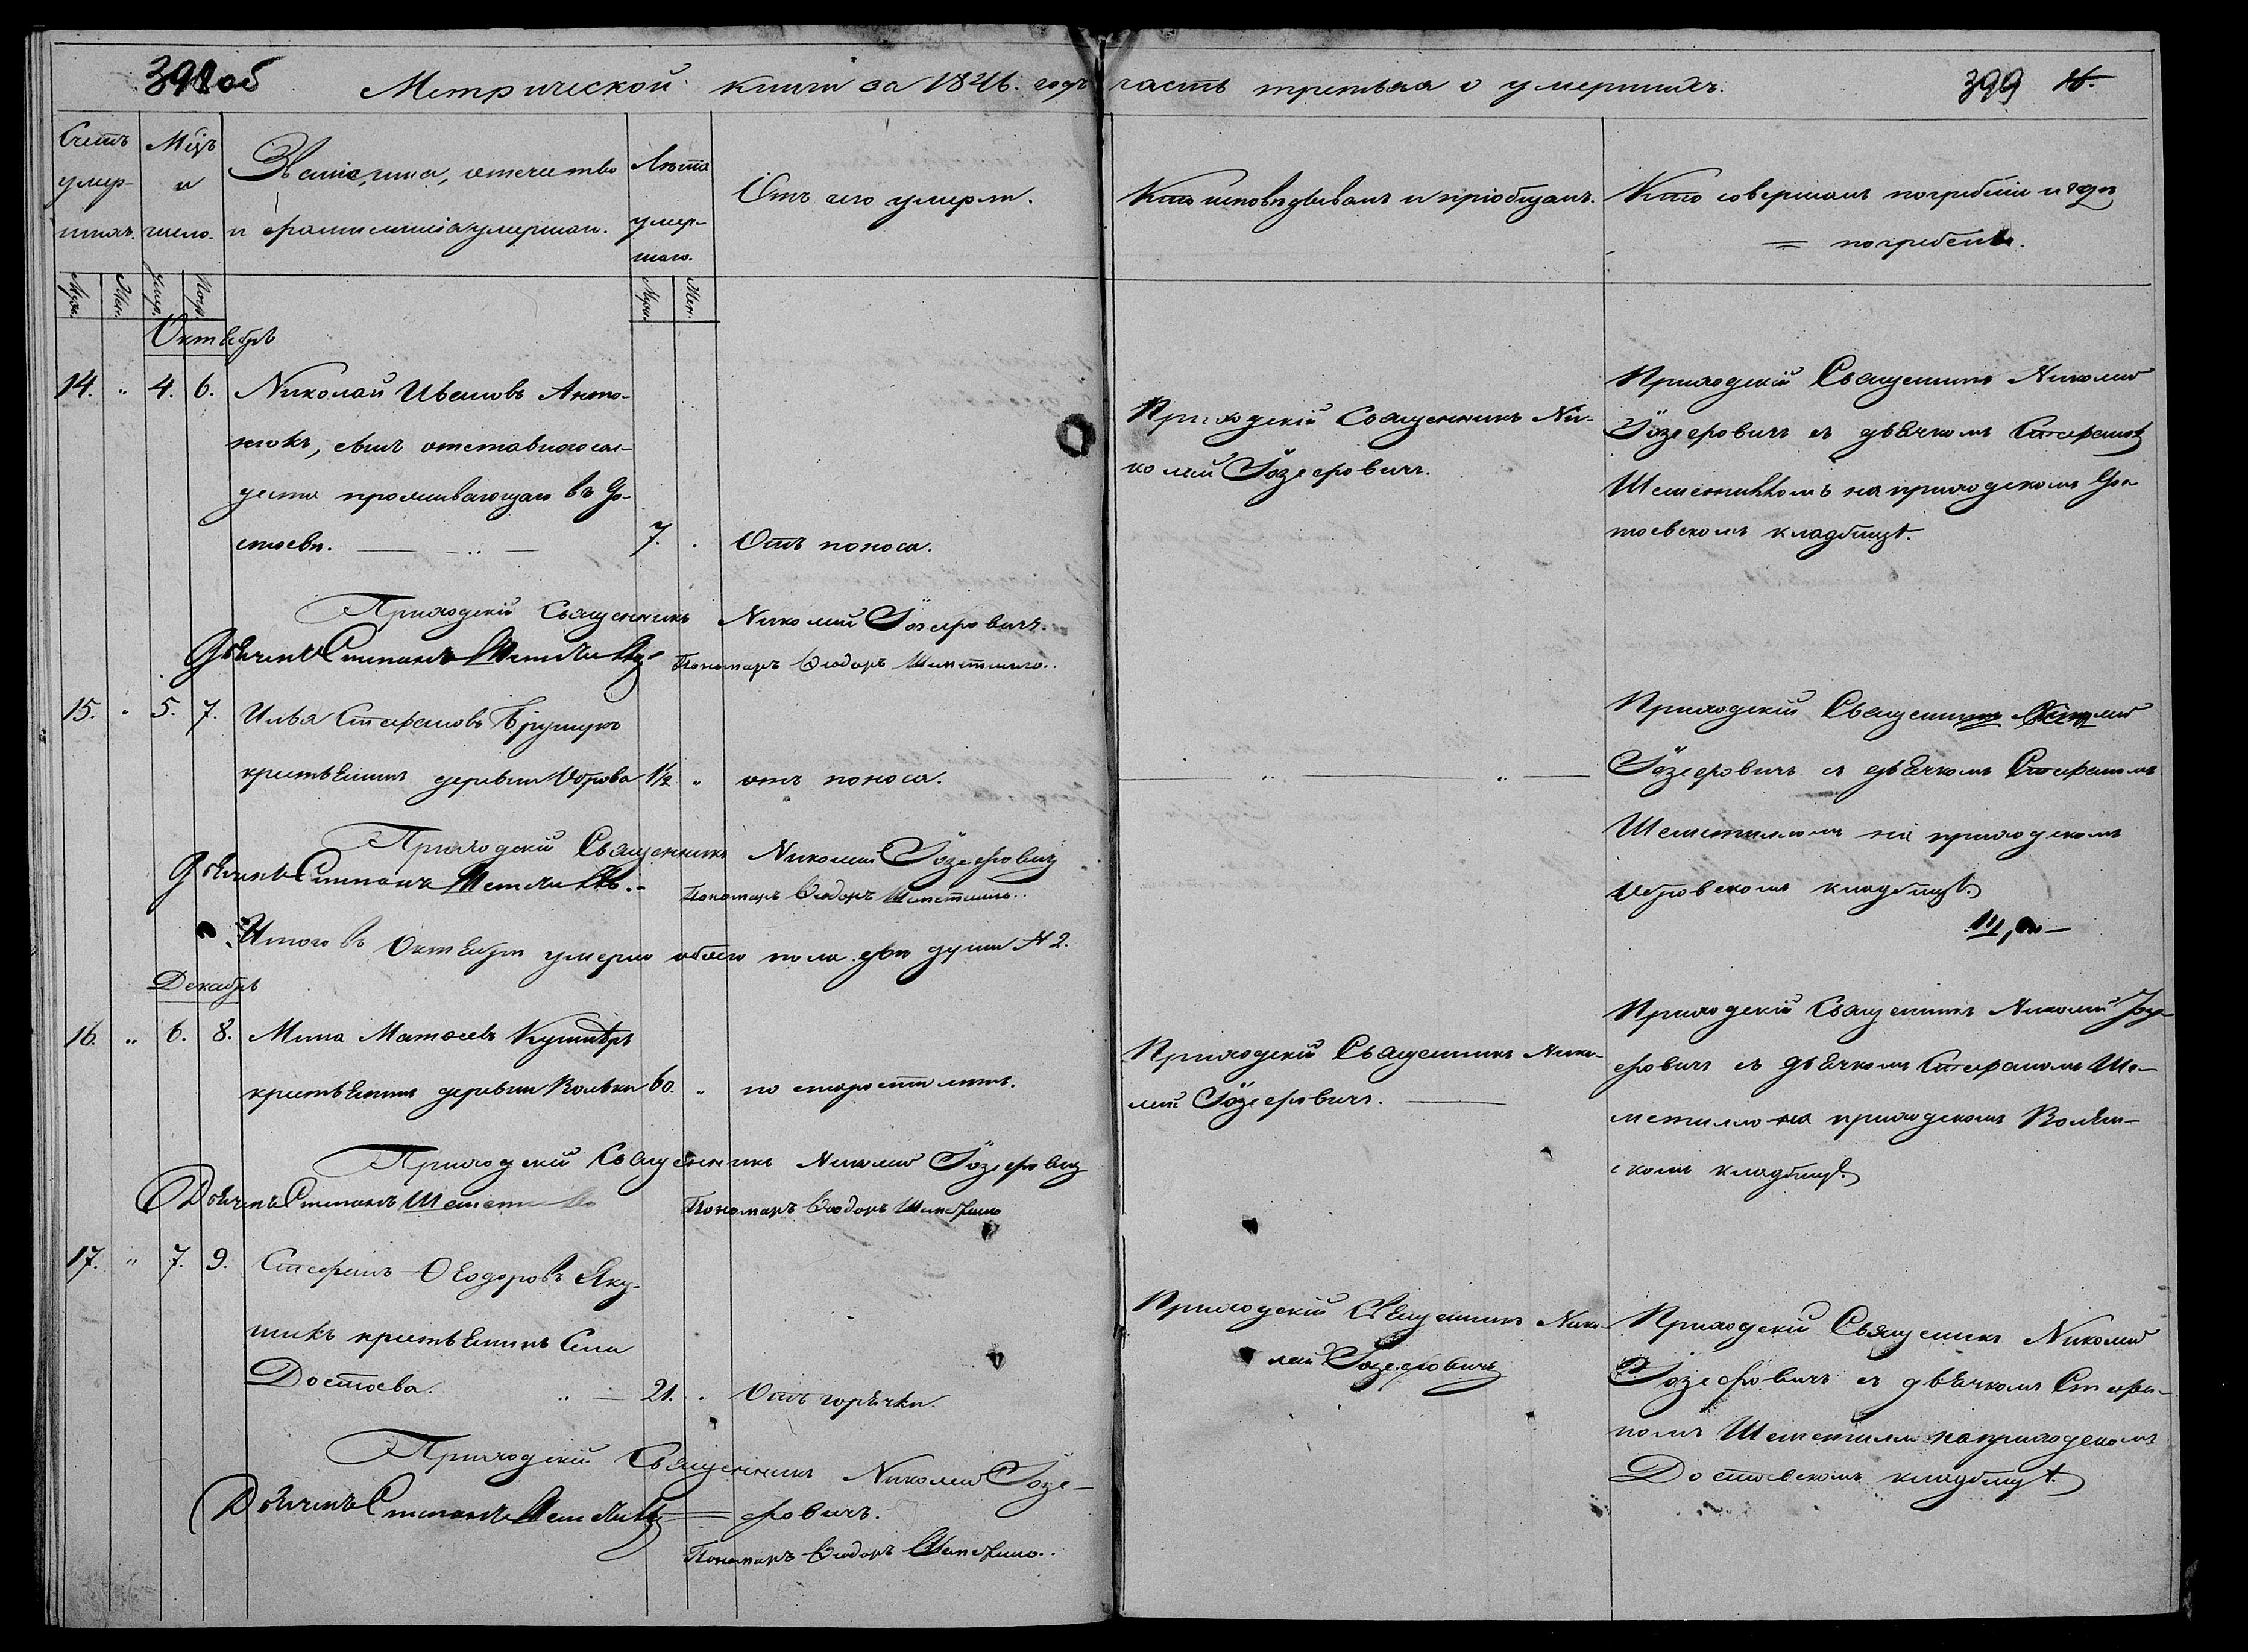 398об Метрической книги за 1846. годъ часть третьяя о умершихъ. 399 16.
Счетъ умер- шихъ.
Мѣсяцъ и число.
Званіе, имя, отечество
и фамилія умершаго.
Лѣта умер- шаго.
Отъ чего умерли.
Кто исповѣдывалъ и пріобщалъ.
Кто совершалъ погребеніе и гдѣ
погребены.
Муж. Жен. Умер. Погр. Муж. Жен.
Октябрь
14. " 4. 6. Николай Ивановъ Анто-
нюкъ, сынъ отставного сол-
дата проживающаго въ До-
стоевѣ. 7. Отъ поноса.
Приходскій Священникъ Ни-
колай Іозефовичъ.
Приходскій Священникъ Николай
Іозефовичъ съ дьячкомъ Стефаномъ
на приходскомъ До-
стоевскомъ кладбищѣ.
Приходскій Священникъ Николай Іозефовичъ.
Дьячекъ Степанъ Пономарь Ѳеодоръ
15. " 5. 7. Илья Стефановъ
крестьянинъ деревни 1½ " отъ поноса.
Приходскій Священникъ
Іозефовичъ съ дьячкомъ Стефаномъ
на приходскомъ
кладбищѣ.
Приходскій Священникъ Николай Іозефовичъ
Дьячекъ Степанъ Пономарь Ѳеодоръ
Итого въ Октябрѣ умерло обоего пола двѣ души № 2.
Декабрь
16. " 6. 8. Мина Матѳеевъ
крестьянинъ деревни Вольки 60. " по старости лѣтъ.
Приходскій Священникъ Нико-
лай Іозефовичъ.
Приходскій Священникъ Николай Іозе-
фовичъ съ дьячкомъ Стефаномъ Ше-
на приходскомъ
скомъ кладбищѣ.
Приходскій Священникъ Николай Іозефовичъ
Дьячекъ Степанъ Пономарь Ѳеодоръ
17. " 7. 9. Стефанъ Ѳеодоровъ Яку-
шикъ крестьянинъ Села
Достоева. 21. Отъ горячки.
Приходскій Священникъ Нико-
лай Іозефовичъ
Приходскій Священникъ Николай
Іозефовичъ съ дьячкомъ Стефа-
номъ на приходскомъ
Достоевскомъ кладбищѣ.
Приходскій Священникъ Николай Іозе-
фовичъ.
Дьячекъ Степанъ
Пономарь Ѳеодоръ